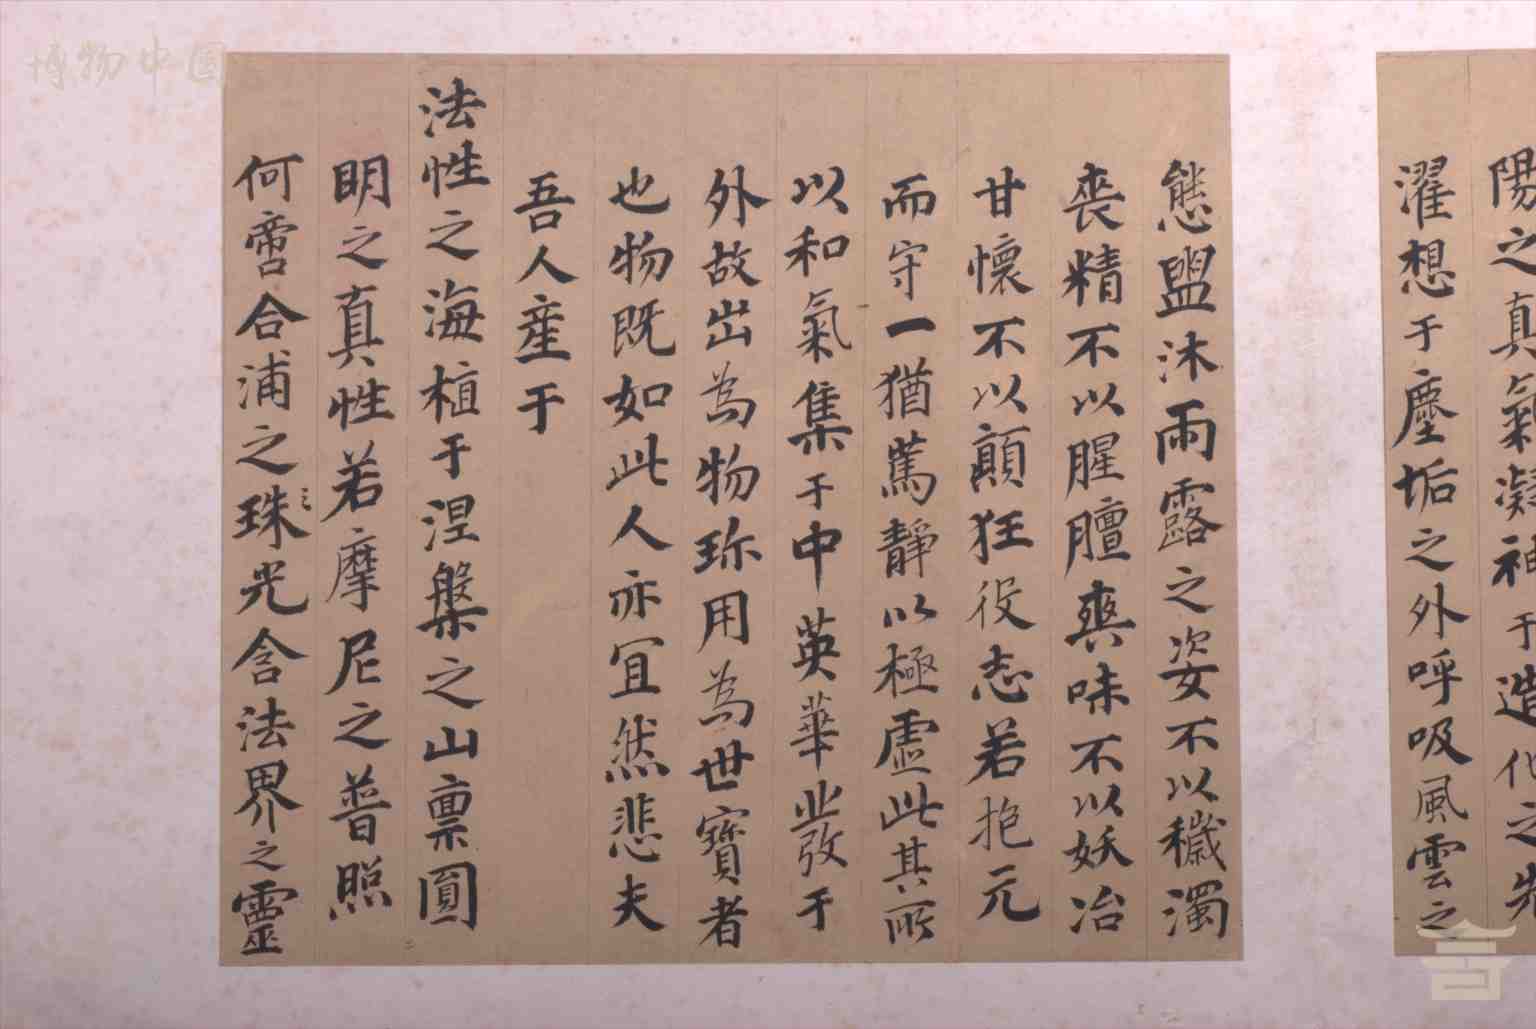 陽之真氣凝神于造化之先
濯想于塵垢之外呼吸風雲之
態盥沐雨露之姿不以穢濁
喪精不以腥膻爽味不以妖冶
甘懷不以顛狂役志若抱元
而守一猶篤靜以極虛此其所
以和氣集于中英華發于
外故出為物珍用為世寶者
也物既如此人亦宜然悲夫
吾人產于
法性之海植于涅槃之山禀圓
明之真性若摩尼之普照
何啻合浦之珠〻光含法界之靈
博物中国